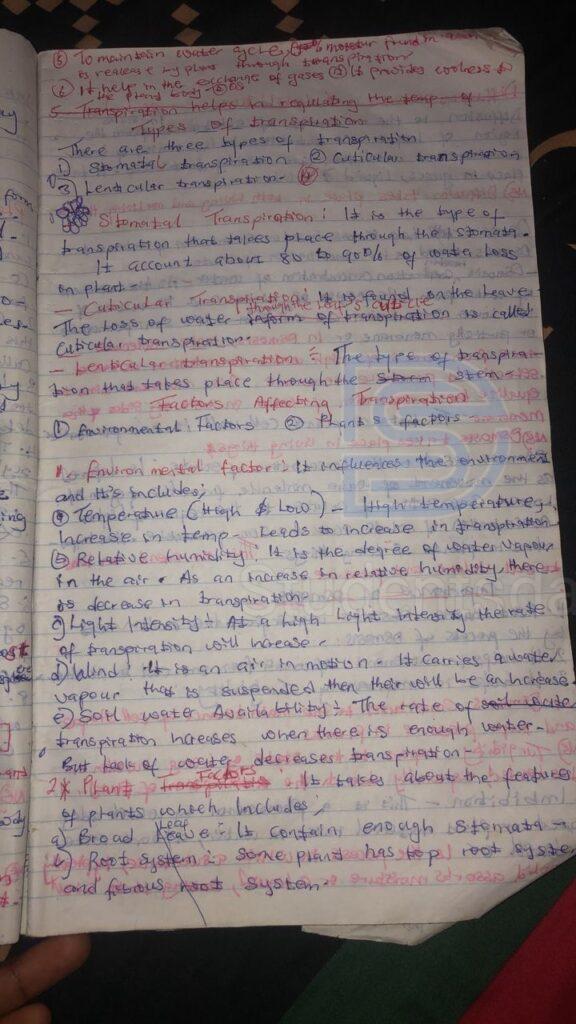 ⑤ To maintain water cycle, moisture found in
is release by plant through transpiration
⑥ It help in the exchange of gases ⑦ It provides coolness to
the plant body
5. Transpiration helps in regulating the temp of
Types of transpiration
There are three types of transpiration
1) Stomatal transpiration ② Cuticular transpiration
3) Lenticular transpiration.
Stomatal Transpiration: It is the type of
transpiration that takes place through the stomata.
It account about 80 to 90% of water loss
on plant.
- Cuticular Transpiration: It is found on the leave
through the leaf's cuticle
The Loss of water inform of transpiration is called
Cuticular transpiration.
- Lenticular transpiration: The type of transpira-
tion that takes place through the stem.
Factors Affecting Transpiration
① Environmental Factors ② Plants factors
1. Environmental factor: It influences the environment
and it's includes;
ⓐ Temperature (High & Low) - High temperature,
Increase in temp - Leads to increase in transpiration
ⓑ Relative humidity: It is the degree of water vapour
in the air. As an increase in relative humidity there
is decrease in transpiration
c) Light Intensity: At a high light intensity the rate
of transpiration will increase.
d) Wind: It is an air in motion. It carries a water
vapour that is suspended then their will be an increase
e) Soil water Availability: The rate of soil water
transpiration increases when there is enough water.
But lack of water decreases transpiration.
2* Plant Factors: It takes about the features
of plants which includes;
a) Broad leaf: It contain enough stomata
b) Root system: some plant has tap root system
and fibrous root system.